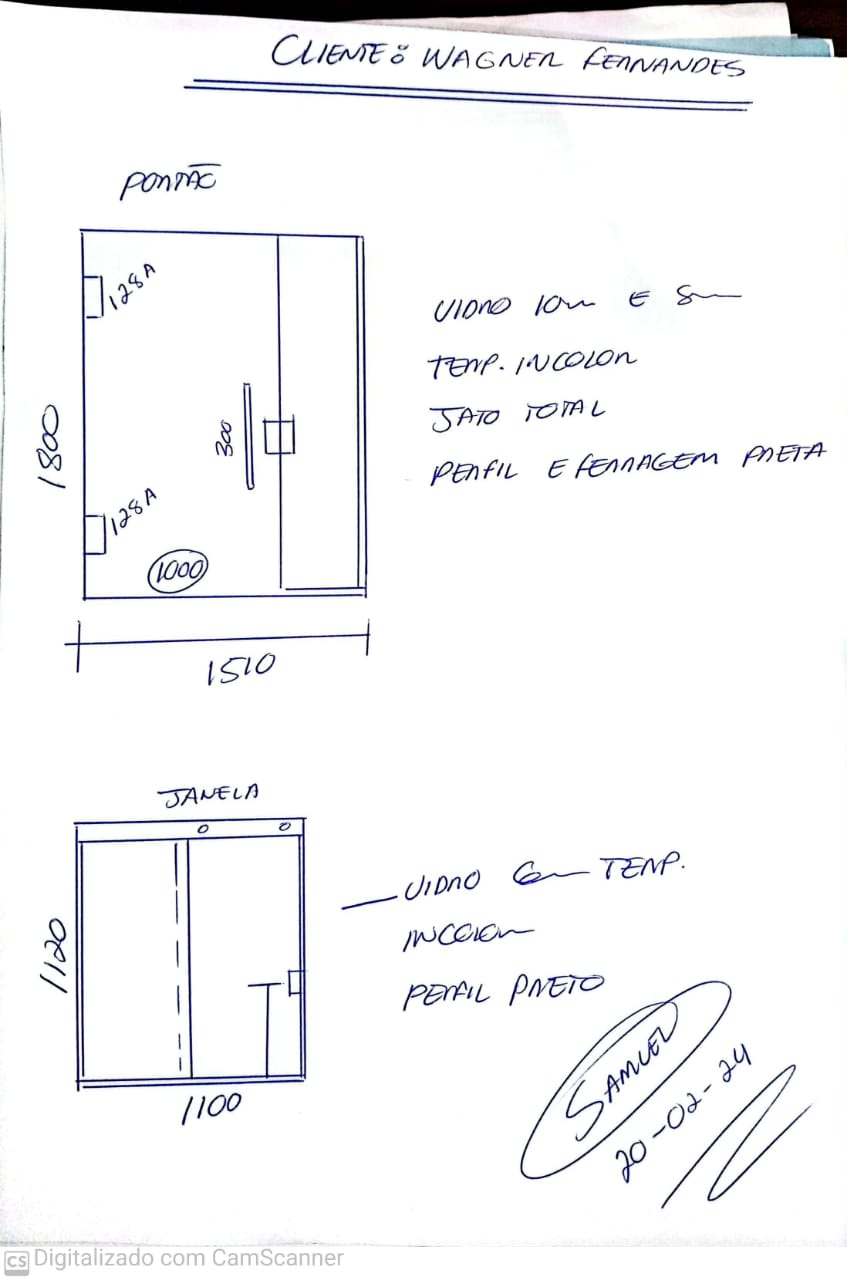 CLIENTE: WAGNER FERNANDES
PORTÃO
128A
1800
300
128A
1000
1510
VIDRO 10m E 8m
TEMP. INCOLOR
JATO TOTAL
PERFIL E FERRAGEM PRETA
JANELA
1120
1100
VIDRO 6m TEMP.
INCOLOR
PERFIL PRETO
SAMUEL
20-02-24
CS Digitalizado com CamScanner